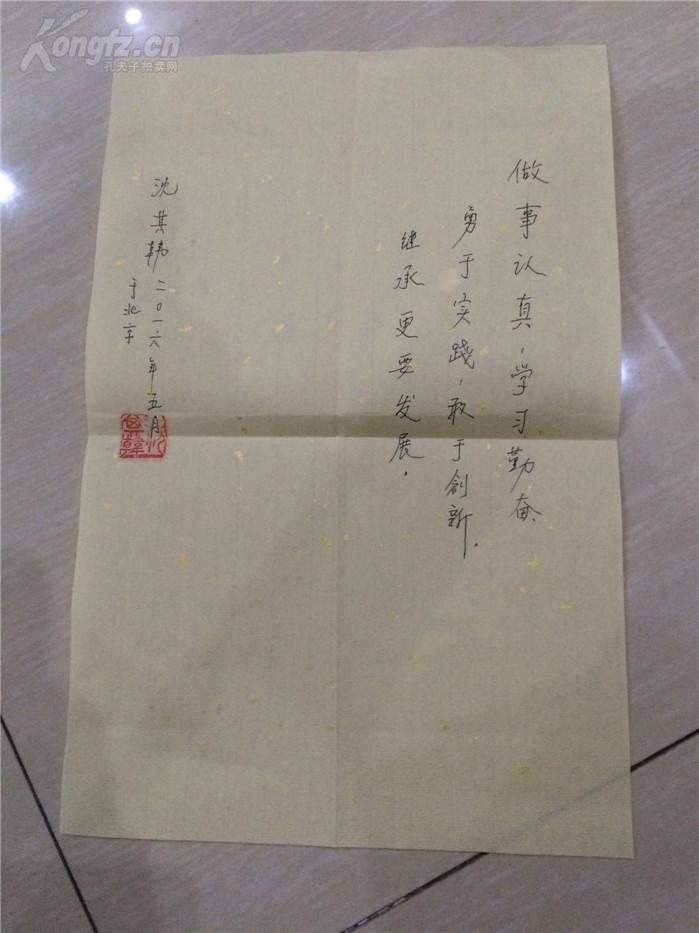 做事认真，学习勤奋、
勇于实践，敢于創新。
继承更要发展。
沈其韩二〇一六年五月
于北京
Kongfz.cn
孔夫子拍卖网